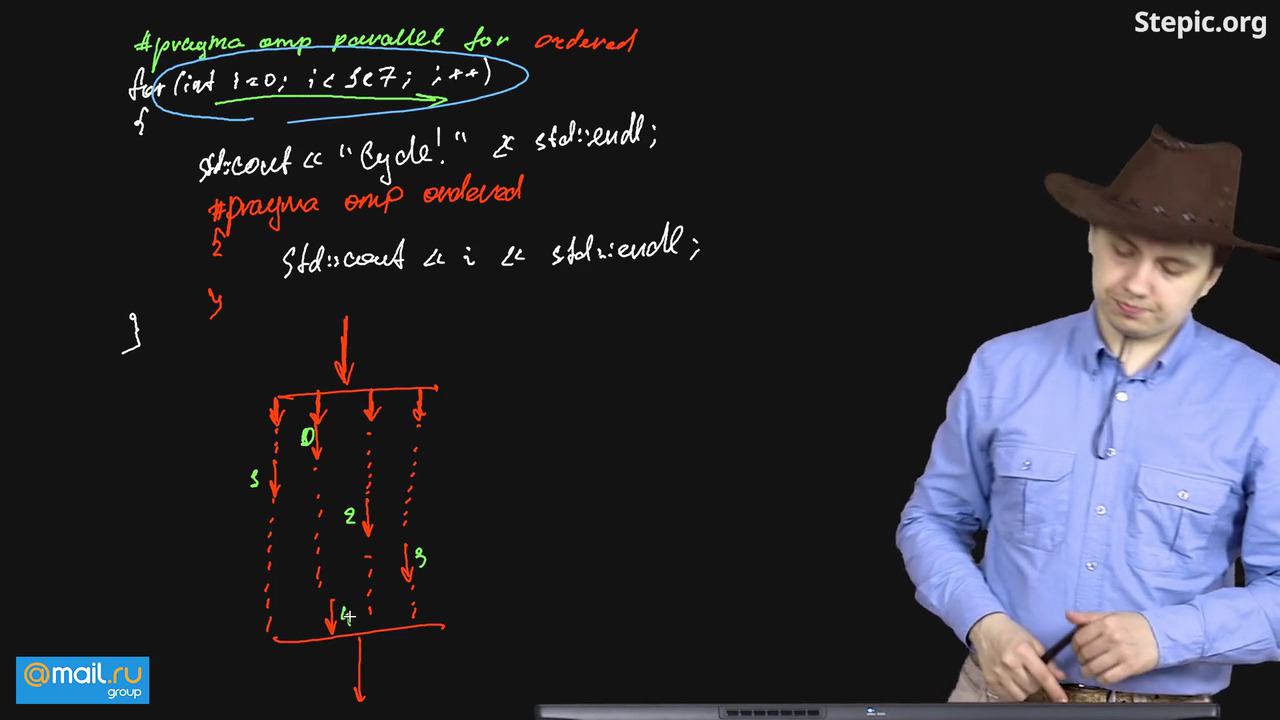 Stepic.org
#pragma omp parallel for ordered
for (int i=0; i < 1e7; i++)
{
std::cout << "Cycle!" << std::endl;
#pragma omp ordered
{
std::cout << i << std::endl;
}
}
0
1
2
3
4
@mail.ru
group